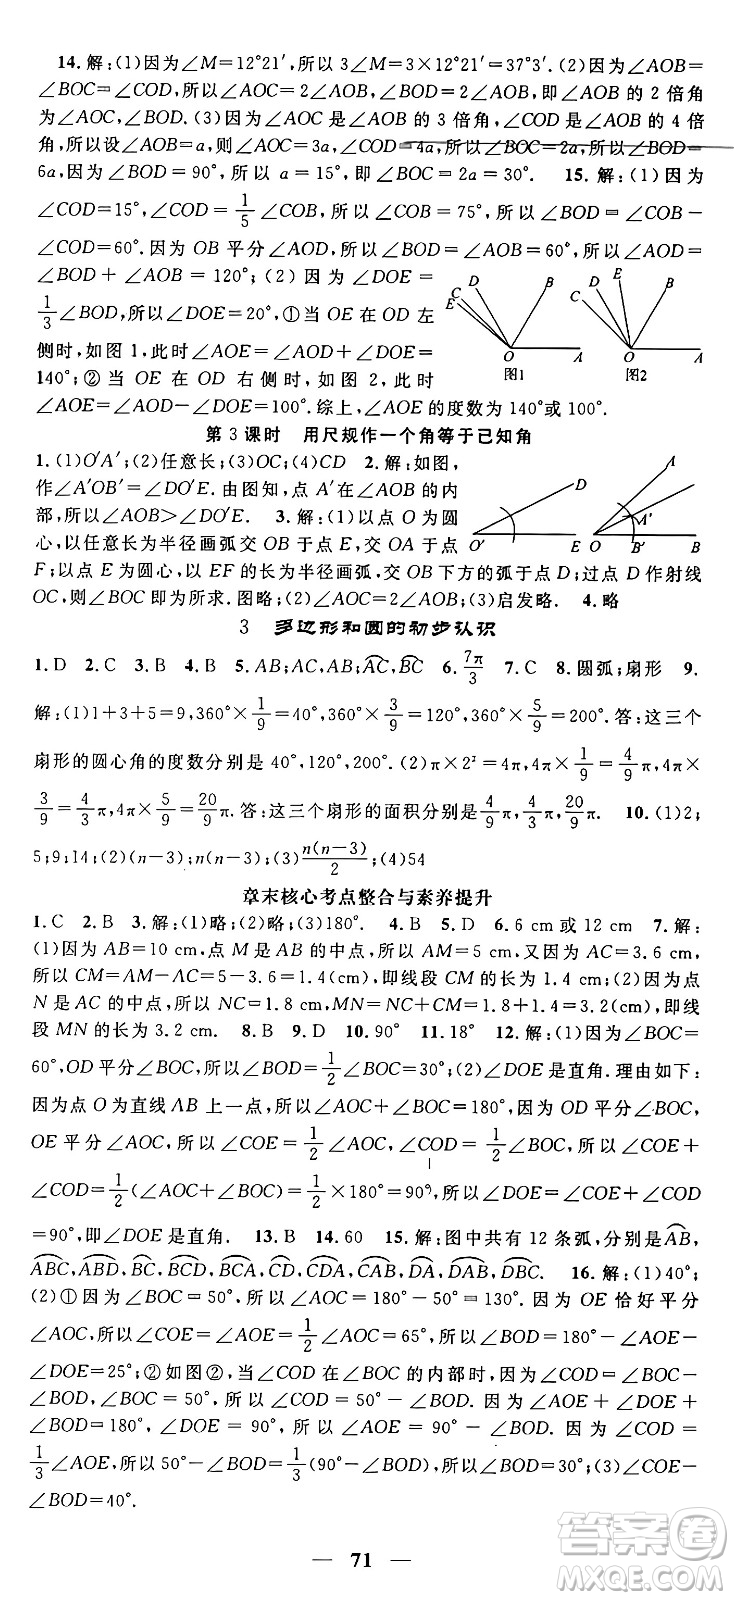 14.解:(1)因为∠M=12°21′,所以3∠M=3×12°21′=37°3′.(2)因为∠AOB=
∠BOC=∠COD,所以∠AOC=2∠AOB,所以∠AOB,即∠AOB的2倍角
为∠AOC,∠BOD.(3)因为∠AOC是∠AOB的3倍角,∠COD是∠AOB的4倍
角,所以设∠AOB=a,则∠AOC=3a,∠COD=4a,所以∠BOC=2a,所以∠BOD=
6a,因为∠BOD=90°,所以a=15°,即∠BOC=2a=30°. 15.解:(1)因为
∠COD=15°,∠COD=1/5∠COB,所以∠COB=75°,所以∠BOD=∠COB-
∠COD=60°.因为OB平分∠AOD,所以∠AOB=∠BOD=60°,所以∠AOD=
∠BOD+∠AOB=120°;(2)因为∠DOE=
1/3∠BOD,所以∠DOE=20°,①当OE在OD左
侧时,如图1,此时∠AOE=∠AOD+∠DOE=
140°;②当OE在OD右侧时,如图2,此时
∠AOE=∠AOD-∠DOE=100°.综上,∠AOE的度数为140°或100°.
C D E B O A 图1
C D E B O A 图2
第3课时 用尺规作一个角等于已知角
1.(1)O′A′;(2)任意长;(3)OC;(4)CD 2.解:如图,
作∠A′OB′=∠DO′E.由图知,点A′在∠AOB的内
部,所以∠AOB>∠DO′E. 3.解:(1)以点O为圆
心,以任意长为半径画弧交OB于点E,交OA于点
D O′ E A A′ O B′ B
F;以点E为圆心,以EF的长为半径画弧,交OB下方的弧于点D;过点D作射线
OC,则∠BOC即为所求.图略;(2)图略;(3)启发略. 4.略
3 多边形和圆的初步认识
1.D 2.C 3.B 4.C 5.AB;AC,AB,BC;AC,BC 6.7π/3 7.C 8.圆弧;扇形 9.
解:(1)1+3+5=9,360°×1/9=40°,360°×3/9=120°,360°×5/9=200°.答:这三个
扇形的圆心角的度数分别是40°,120°,200°.(2)π×2²=4π,4π×1/9=4/9π,4π×
3/9=4/3π,4π×5/9=20/9π.答:这三个扇形的面积分别是4/9π,4/3π,20/9π. 10.(1)2;
5;9;14;(2)(n-3);n(n-3);(3)n(n-3)/2;(4)54
章末核心考点整合与素养提升
1.C 2.B 3.解:(1)略;(2)略;(3)180°. 4.B 5.D 6.6 cm或12 cm 7.解:
(1)因为AB=10 cm,点M是AB的中点,所以AM=5 cm,又因为AC=3.6 cm,
所以CM=AM-AC=5-3.6=1.4(cm),即线段CM的长为1.4 cm;(2)因为点
N是AC的中点,所以NC=1.8 cm,所以MN=NC+CM=1.8+1.4=3.2(cm),即线
段MN的长为3.2 cm. 8.B 9.D 10.90° 11.18° 12.解:(1)因为∠BOC=
60°,OD平分∠BOC,所以∠BOD=1/2∠BOC=30°;(2)∠DOE是直角.理由如下:
因为点O为直线AB上一点,所以∠AOC+∠BOC=180°,因为OD平分∠BOC,
OE平分∠AOC,所以∠COE=1/2∠AOC,∠COD=1/2∠BOC,所以∠COE+
∠COD=1/2(∠AOC+∠BOC)=1/2×180°=90°,所以∠DOE=∠COE+∠COD
=90°,即∠DOE是直角. 13.B 14.60 15.解:图中共有12条弧,分别是AB,
ABC,ABD,BC,BCD,BCA,CD,CDA,CAB,DA,DAB,DBC. 16.解:(1)40°;
(2)①因为∠BOC=50°,所以∠AOC=180°-50°=130°.因为OE恰好平分
∠AOC,所以∠COE=∠AOE=1/2∠AOC=65°,所以∠BOD=180°-∠AOE-
∠DOE=25°;②如图②,当∠COD在∠BOC的内部时,因为∠COD=∠BOC-
∠BOD,而∠BOC=50°,所以∠COD=50°-∠BOD.因为∠AOE+∠DOE+
∠BOD=180°,∠DOE=90°,所以∠AOE=90°-∠BOD.因为∠COD=
1/3∠AOE,所以50°-∠BOD=1/3(90°-∠BOD),所以∠BOD=30°;(3)∠COE-
∠BOD=40°.
71
答案圈
MXQE.COM